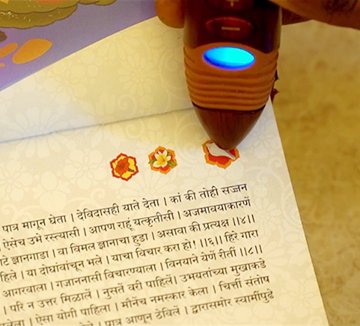 पात्र मागून घेता । देविदासही याते देता । कां की तोही सज्जन
ऐसेंच उभे रस्त्यासी । आपण राहूं यत्कृतीसी । अजमावयाकारणें
टे ज्ञानगाडा । या विमल ज्ञानाचा हुडा । असावा की प्रत्यक्ष ॥४॥
हिले । या दोघांवांचून भले । याचा विचार करा हो ॥६॥ हिरे गारा
आगरवाला । गजाननासी विचारण्याला । विनयानें येणें रीतीं ॥८॥
परि न उत्तर मिळालें । नुसतें वरी पाहिलें । उभयतांच्या मुखाकडे
ऐसा योगी पाहिला । मौनेंच नमस्कार केला । चित्तीं संतोष
पात्र आणून ठेविलें । द्वारासमोर स्वामींपुढें